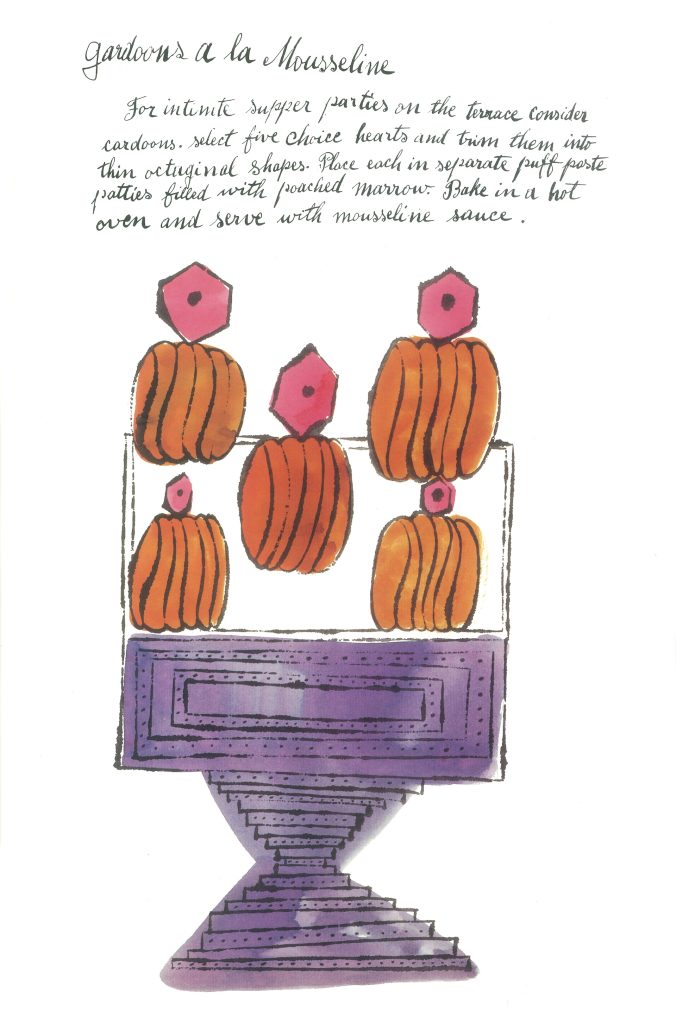 gardoons a la Mousseline
For intimite supper parties on the terrace consider
cardoons. select five choice hearts and trim them into
thin octuginal shapes. Place each in separate puff paste
patties filled with poached marrow. Bake in a hot
oven and serve with mousseline sauce.